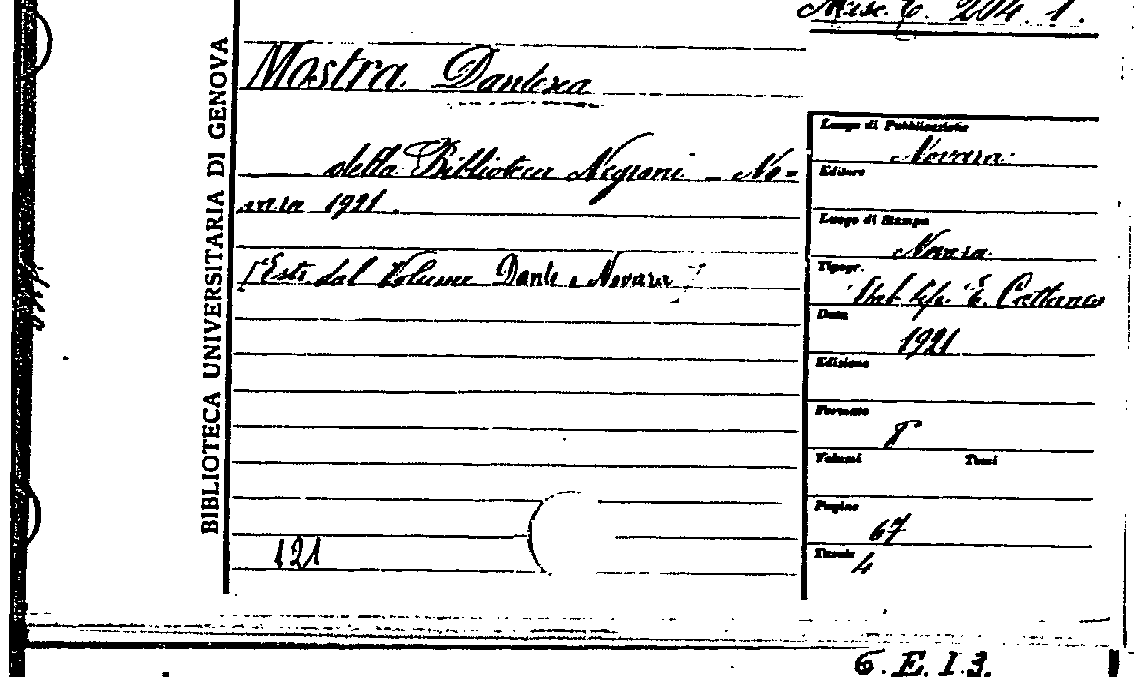 Misc. C. 204. 1.
BIBLIOTECA UNIVERSITARIA DI GENOVA
Mostra Dantesca
della Biblioteca Negroni - No=
vara 1921.
[Estr. dal Volume Dante e Novara]
121
Luogo di Pubblicazione
Novara
Editore
Luogo di Stampa
Novara
Tipogr.
Stab. tip. E. Cattaneo
Data
1921
Edizione
Formato
8
Volumi Tomi
Pagine
67
Tavole
4
6. E. I 3.